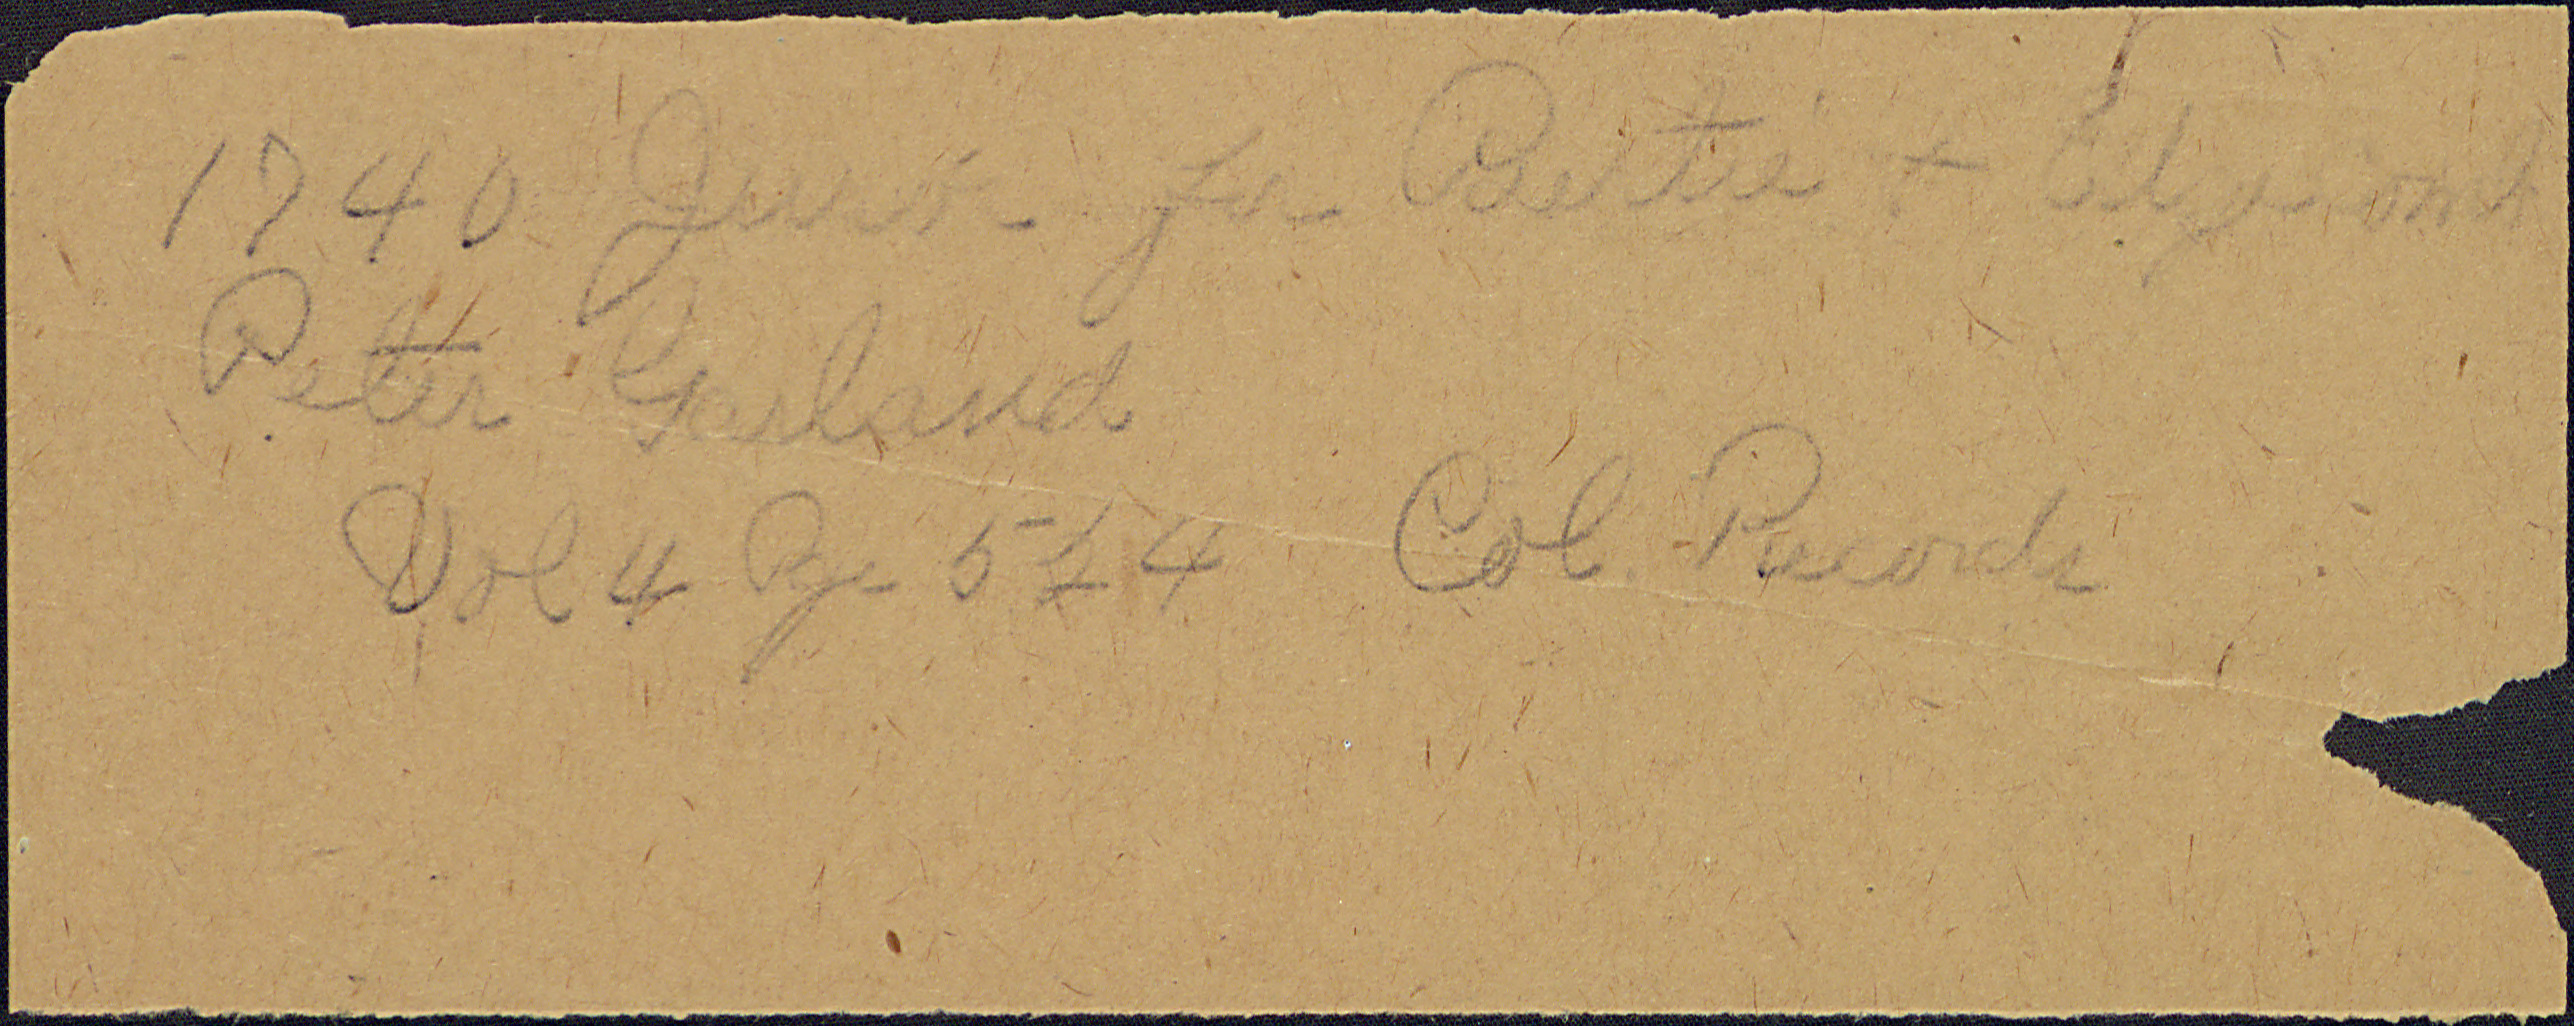 1740 Jurors for Bertie + Edgecomb
Peter Garland
Vol 4 Pge 524 Col. Records